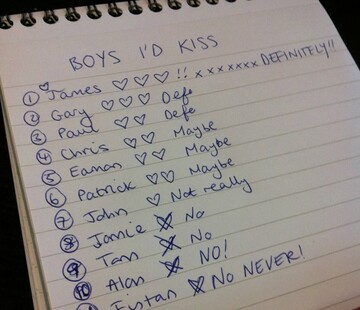 BOYS I'D KISS
1 James ♡ ♡ ♡ !! x x x x x x x DEFINITELY!!
2 Gary ♡ ♡ ♡ Defo
3 Paul ♡ ♡ Defo
4 Chris ♡ ♡ Maybe
5 Eaman ♡ ♡ Maybe
6 Patrick ♡ ♡ Maybe
7 John ♡ Not really
8 Jamie No
9 Tam No
10 Alan NO!
NO NEVER!